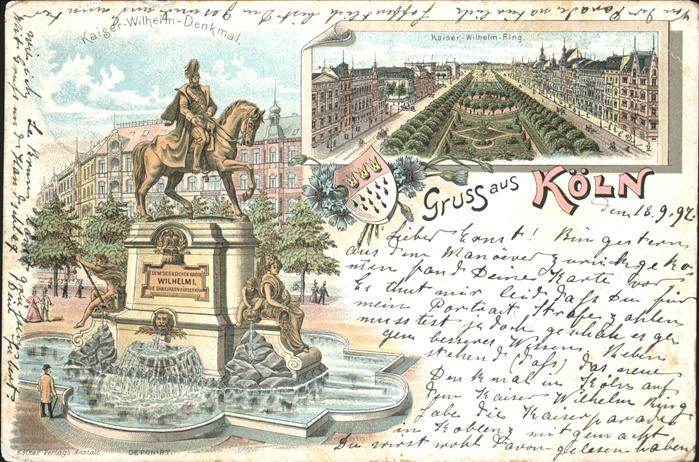 Kaiser-Wilhelm-Denkmal.
Kaiser-Wilhelm-Ring.
Gruss aus KÖLN
DEM SIEGREICHEN KAISER
WILHELM I.
DIE DANKBAREN BÜRGER KÖLNS
den 18.9.97.
Lieber Ernst! Bin gestern
aus dem Manöver zurückgekom
men fand Deine Karte vor
Es tut mir leid, daß Du für
mein Portrait Strafe zahlen
musstest jedoch geschah es ge
gen besseres Wissen. Neben
stehend (daß) das neue
Denkmal in Köln auf
dem Kaiser Wilhelm Ring
habe die Kaiserparade
in Koblenz mitgemacht
Du wirst wohl davon gelesen haben
von der Parade natürlich hoffentlich bist Du
Kölner Verlags-Anstalt
DEPONIRT.